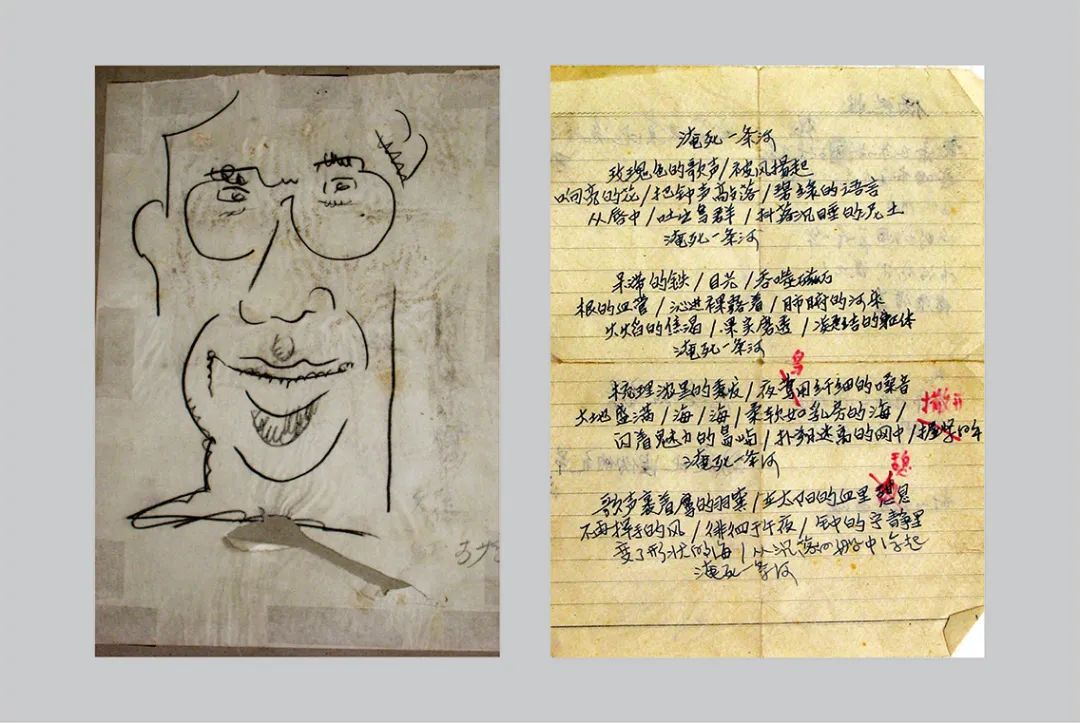 淹死一条河
玫瑰色的歌声/被风撂起
响亮的花/把钟声高高落/碧绿的语言
从唇中/吐出鸟群/抖落沉睡的尼土
淹死一条河
呆滞的铁/目光/吞噬磁石
根的血管/沁进裸露着/肺腑的河床
火焰的焦渴/果实磨透/凝结的躯体
淹死一条河
梳理浓黑的秀发/夜莺用纤细的嗓音
鸟
大地盛满/海/海/柔软如乳房的海/
撒开
闪着魅力的岛屿/扑朔迷离的网中/
淹死一条河
憩
歌声裹着鹰的羽翼/在太阳的血里 息
不再挥手的风/徘徊于午夜/钟的宁静里
变了形状的海/从沉落的 中浮起
淹死一条河